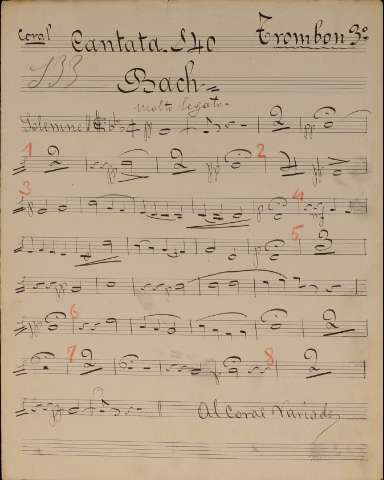 Coral Cantata 140 Trombon 3º
133
Bach
molt legato
Solemne pp 2 pp
1 2 2 2
3 4
5 2
6 2
7 2 8 2
Al Coral Variado